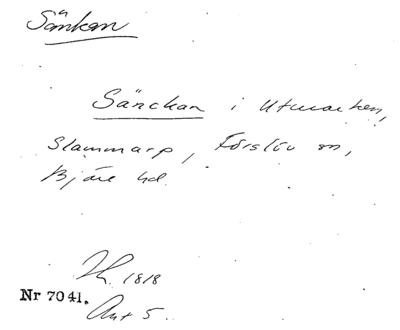 Sänkan
Sänckan i Utmarken,
Slammarp, Förslöv sn,
Bjäre hd.
1818
Nr 7041.
Ant 5